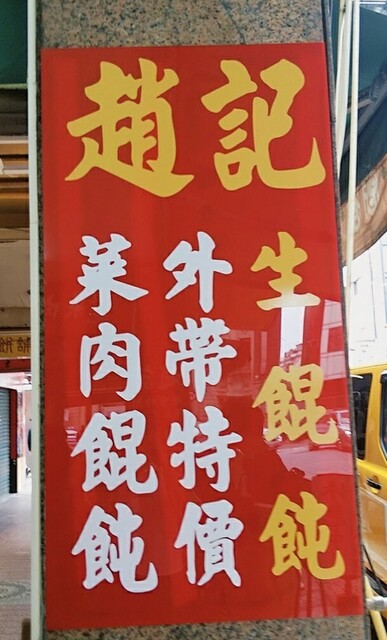 趙記
生餛飩
外帶特價
菜肉餛飩